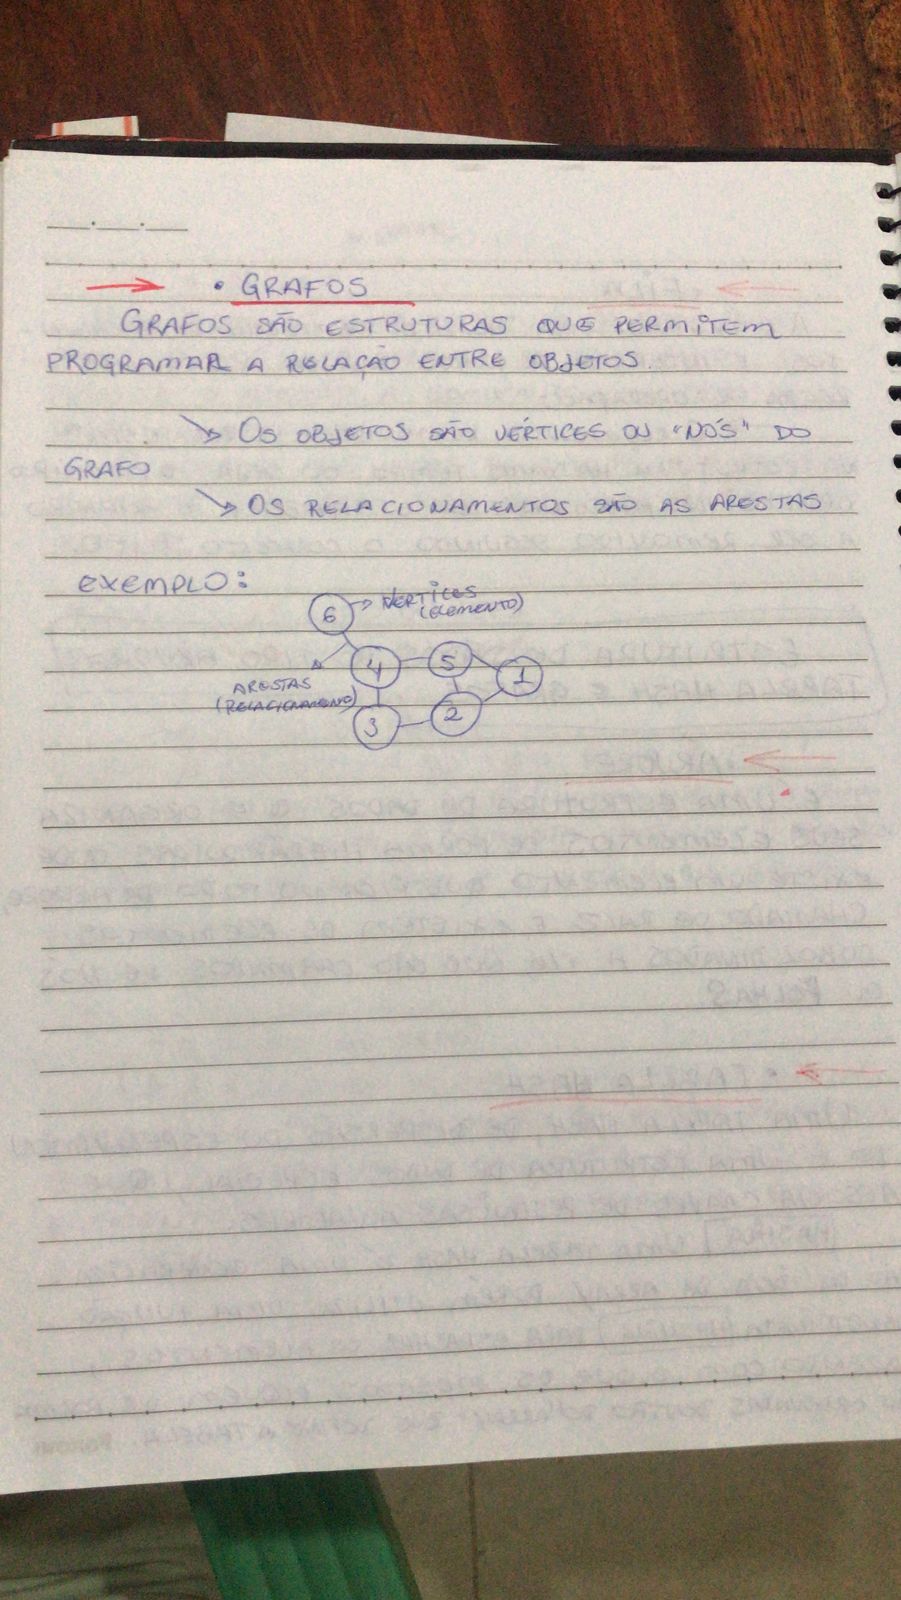 • GRAFOS
GRAFOS SÃO ESTRUTURAS QUE PERMITEM
PROGRAMAR A RELAÇÃO ENTRE OBJETOS.
OS OBJETOS SÃO VÉRTICES OU "NÓS" DO
GRAFO
OS RELACIONAMENTOS SÃO AS ARESTAS
EXEMPLO:
6 VERTICES
(ELEMENTO)
4 5 1
ARESTAS
(RELACIONAMENTO)
3 2